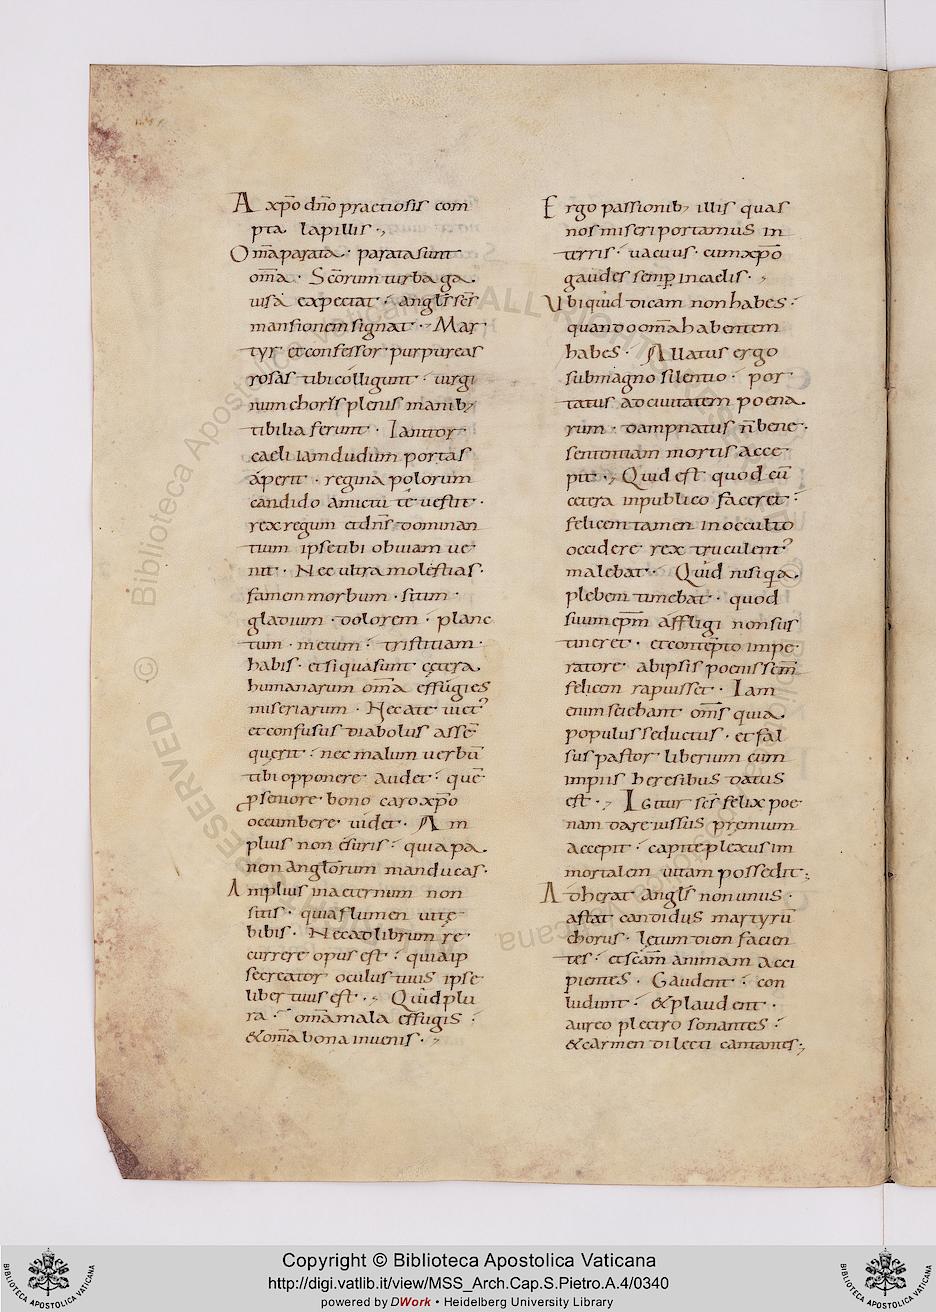 A xp̄o dn̄o praetiosis com
pta lapillis·,
Om̄a parata· parata sunt
om̄a· Sc̄orum turba ga
uisa expectat· angl's ser
mansionem signat·, Mar
tyr et confessor· purpureas
rosas tibi colligunt· uirgi
num choris plenis manib;
tibi lilia ferunt· Ianitor
caeli iamdudum portas
aperit· regina polorum
candido amictu te uestit·
rex regum et dn̄s dominan
tium ipse tibi obuiam ue
nit· Nec ultra molestias·
famem morbum· sitim·
gladium· dolorem· planc
tum· metum· tristitiam·
habis· et si qua sunt cętera
humanarum om̄a effugies
miseriarum· Nec a te uict'
et confusus diabolus assē
querit· nec malum uerbū
tibi opponere audet· quē
p seniore bono caro xp̄o
occumbere uidet· Am
plius non esuris· quia pa
nem anglorum manducas·
Amplius in aeternum non
sitis· quia flumen uitę
bibis· Nec ad librum re
currere opus est· quia ip
se creator oculus tuus ipse
liber tuus est·, Quid plu
ra· om̄a mala effugis·
& om̄a bona inuenis·,
Ergo passionib; illis quas
nos miseri portamus in
terris· uacuus· cum xp̄o
gaudes semp in caelis·,
Ubi quid dicam non habes·
quando om̄a habentem
habes· Allatus ergo
sub magno silentio· por
tatus ad ciuitatem poena
rum· dampnatus n̄ bene·
sententiam mortis acce
pit·, Quid est quod cū
cetera in publico faceret·
felicem tamen in occulto
occidere rex truculent'
malebat· Quid nisi q̇a
plebem timebat· quod
suum ep̄m affligi non sus
tineret· et contempto impe
ratore· ab ipsis poenis sēm
felicem rapuisset· Iam
enim sciebant om̄s quia
populus seductus· et fal
sus pastor liberium cum
impiis heresibus datus
est·, Igitur ser felix poe
nam dare iussus pręmium
accepit· capite plexus im
mortalem uitam possedit·,
Adherat angl's non unus·
astat candidus martyrū
chorus· lętum diem facien
tes· et sc̄am animam acci
pientes· Gaudent· con
ludunt· & plaudent·
aureo plectro sonantes·
& carmen dilecti cantantes·,
Copyright © Biblioteca Apostolica Vaticana
http://digi.vatlib.it/view/MSS_Arch.Cap.S.Pietro.A.4/0340
powered by DWork • Heidelberg University Library